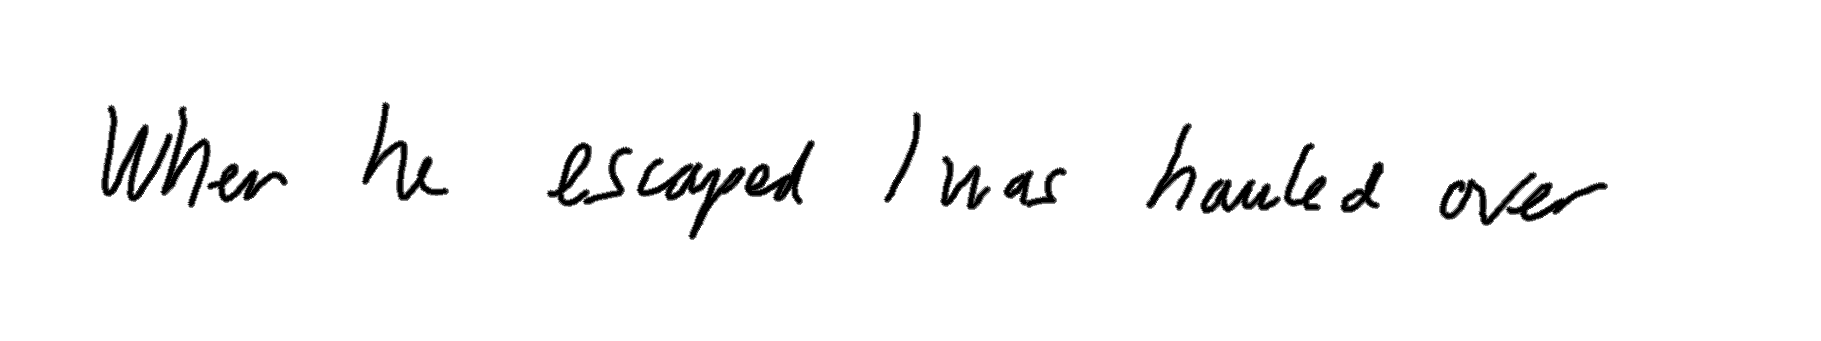 When he escaped I was hauled over